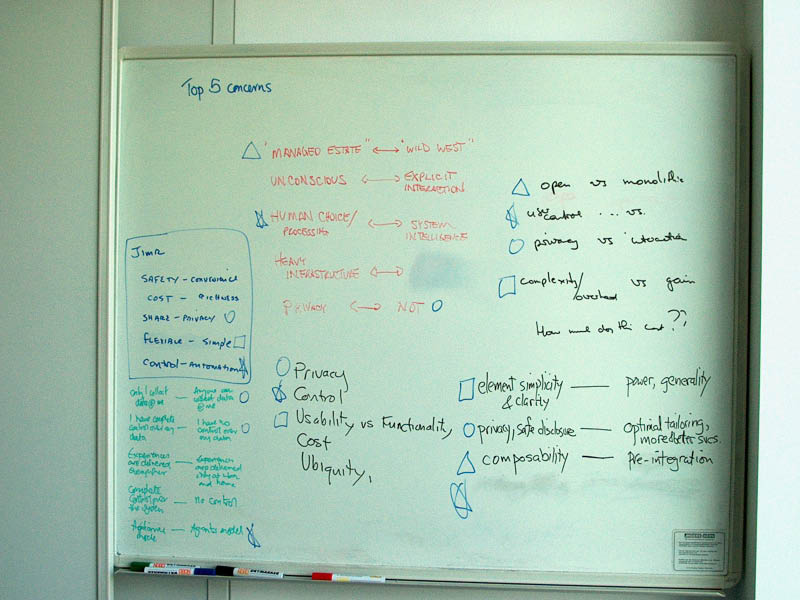 Top 5 concerns
"MANAGED ESTATE" ↔ "WILD WEST"
UNCONSCIOUS ↔ EXPLICIT
INTERACTION
HUMAN CHOICE/ ↔ SYSTEM
PROCESSING INTELLIGENCE
HEAVY
INFRASTRUCTURE ↔
PRIVACY ↔ NOT
open vs monolithic
control ... vs.
privacy vs
complexity/ vs gain
overhead
How much does this cost??
JIMR
SAFETY - CONVENIENCE
COST - RICHNESS
SHARE - PRIVACY
FLEXIBLE - Simple
CONTROL - AUTOMATION
only I collect — Anyone can
data@me collect data
@me
I have complete — I have no
control over my control over
data my data
Experiences — Experiences
are delivered are delivered
everywhere only at work
and home
Complete — No control
control over
the system
Appliance — Agents model
mode
Privacy
Control
Usability vs Functionality
Cost
Ubiquity,
element simplicity — power, generality
& clarity
privacy, safe disclosure — optimal tailoring,
more better svcs.
composability — pre-integration